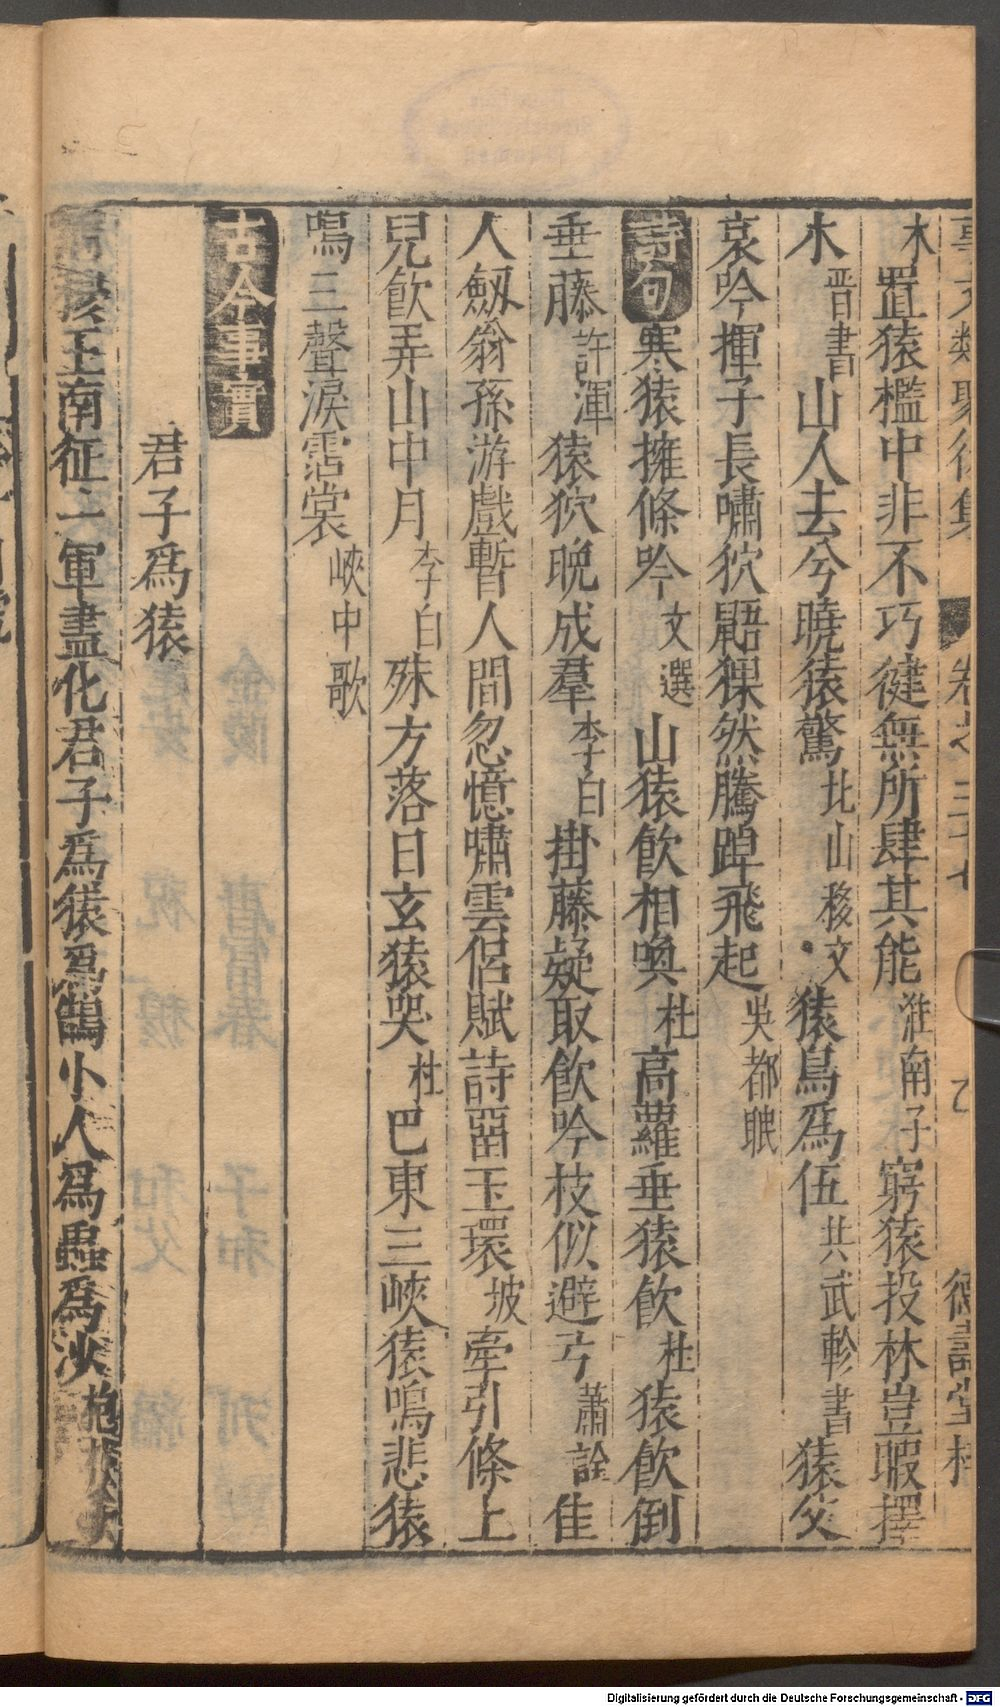 事文類聚後集 卷之三十七 乙 德壽堂梓
木置猿檻中非不巧徤無所肆其能淮南子窮猿投林豈暇擇
木晋書山人去兮曉猿驚北山移文猿鳥爲伍共武軫書猿父
哀吟揮子長嘯狖鼯猓然騰踔飛起吳都
詩句寒猿擁條吟文選山猿飲相喚杜高蘿垂猿飲杜猿飲倒
垂藤許渾猿狖晩成羣李白掛藤疑取飲吟枝似避弓蕭詮佳
人劒翁孫游戲暫人間忽憶嘯雲侣賦詩留玉環坡牽引條上
兒飲弄山中月李白殊方落日玄猿哭杜巴東三峽猿鳴悲猿
鳴三聲淚霑裳峽中歌
古今事實
君子爲猿
周穆王南征一軍盡化君子爲猿爲鶴小人爲蟲爲沙抱朴子
Digitalisierung gefördert durch die Deutsche Forschungsgemeinschaft - DFG